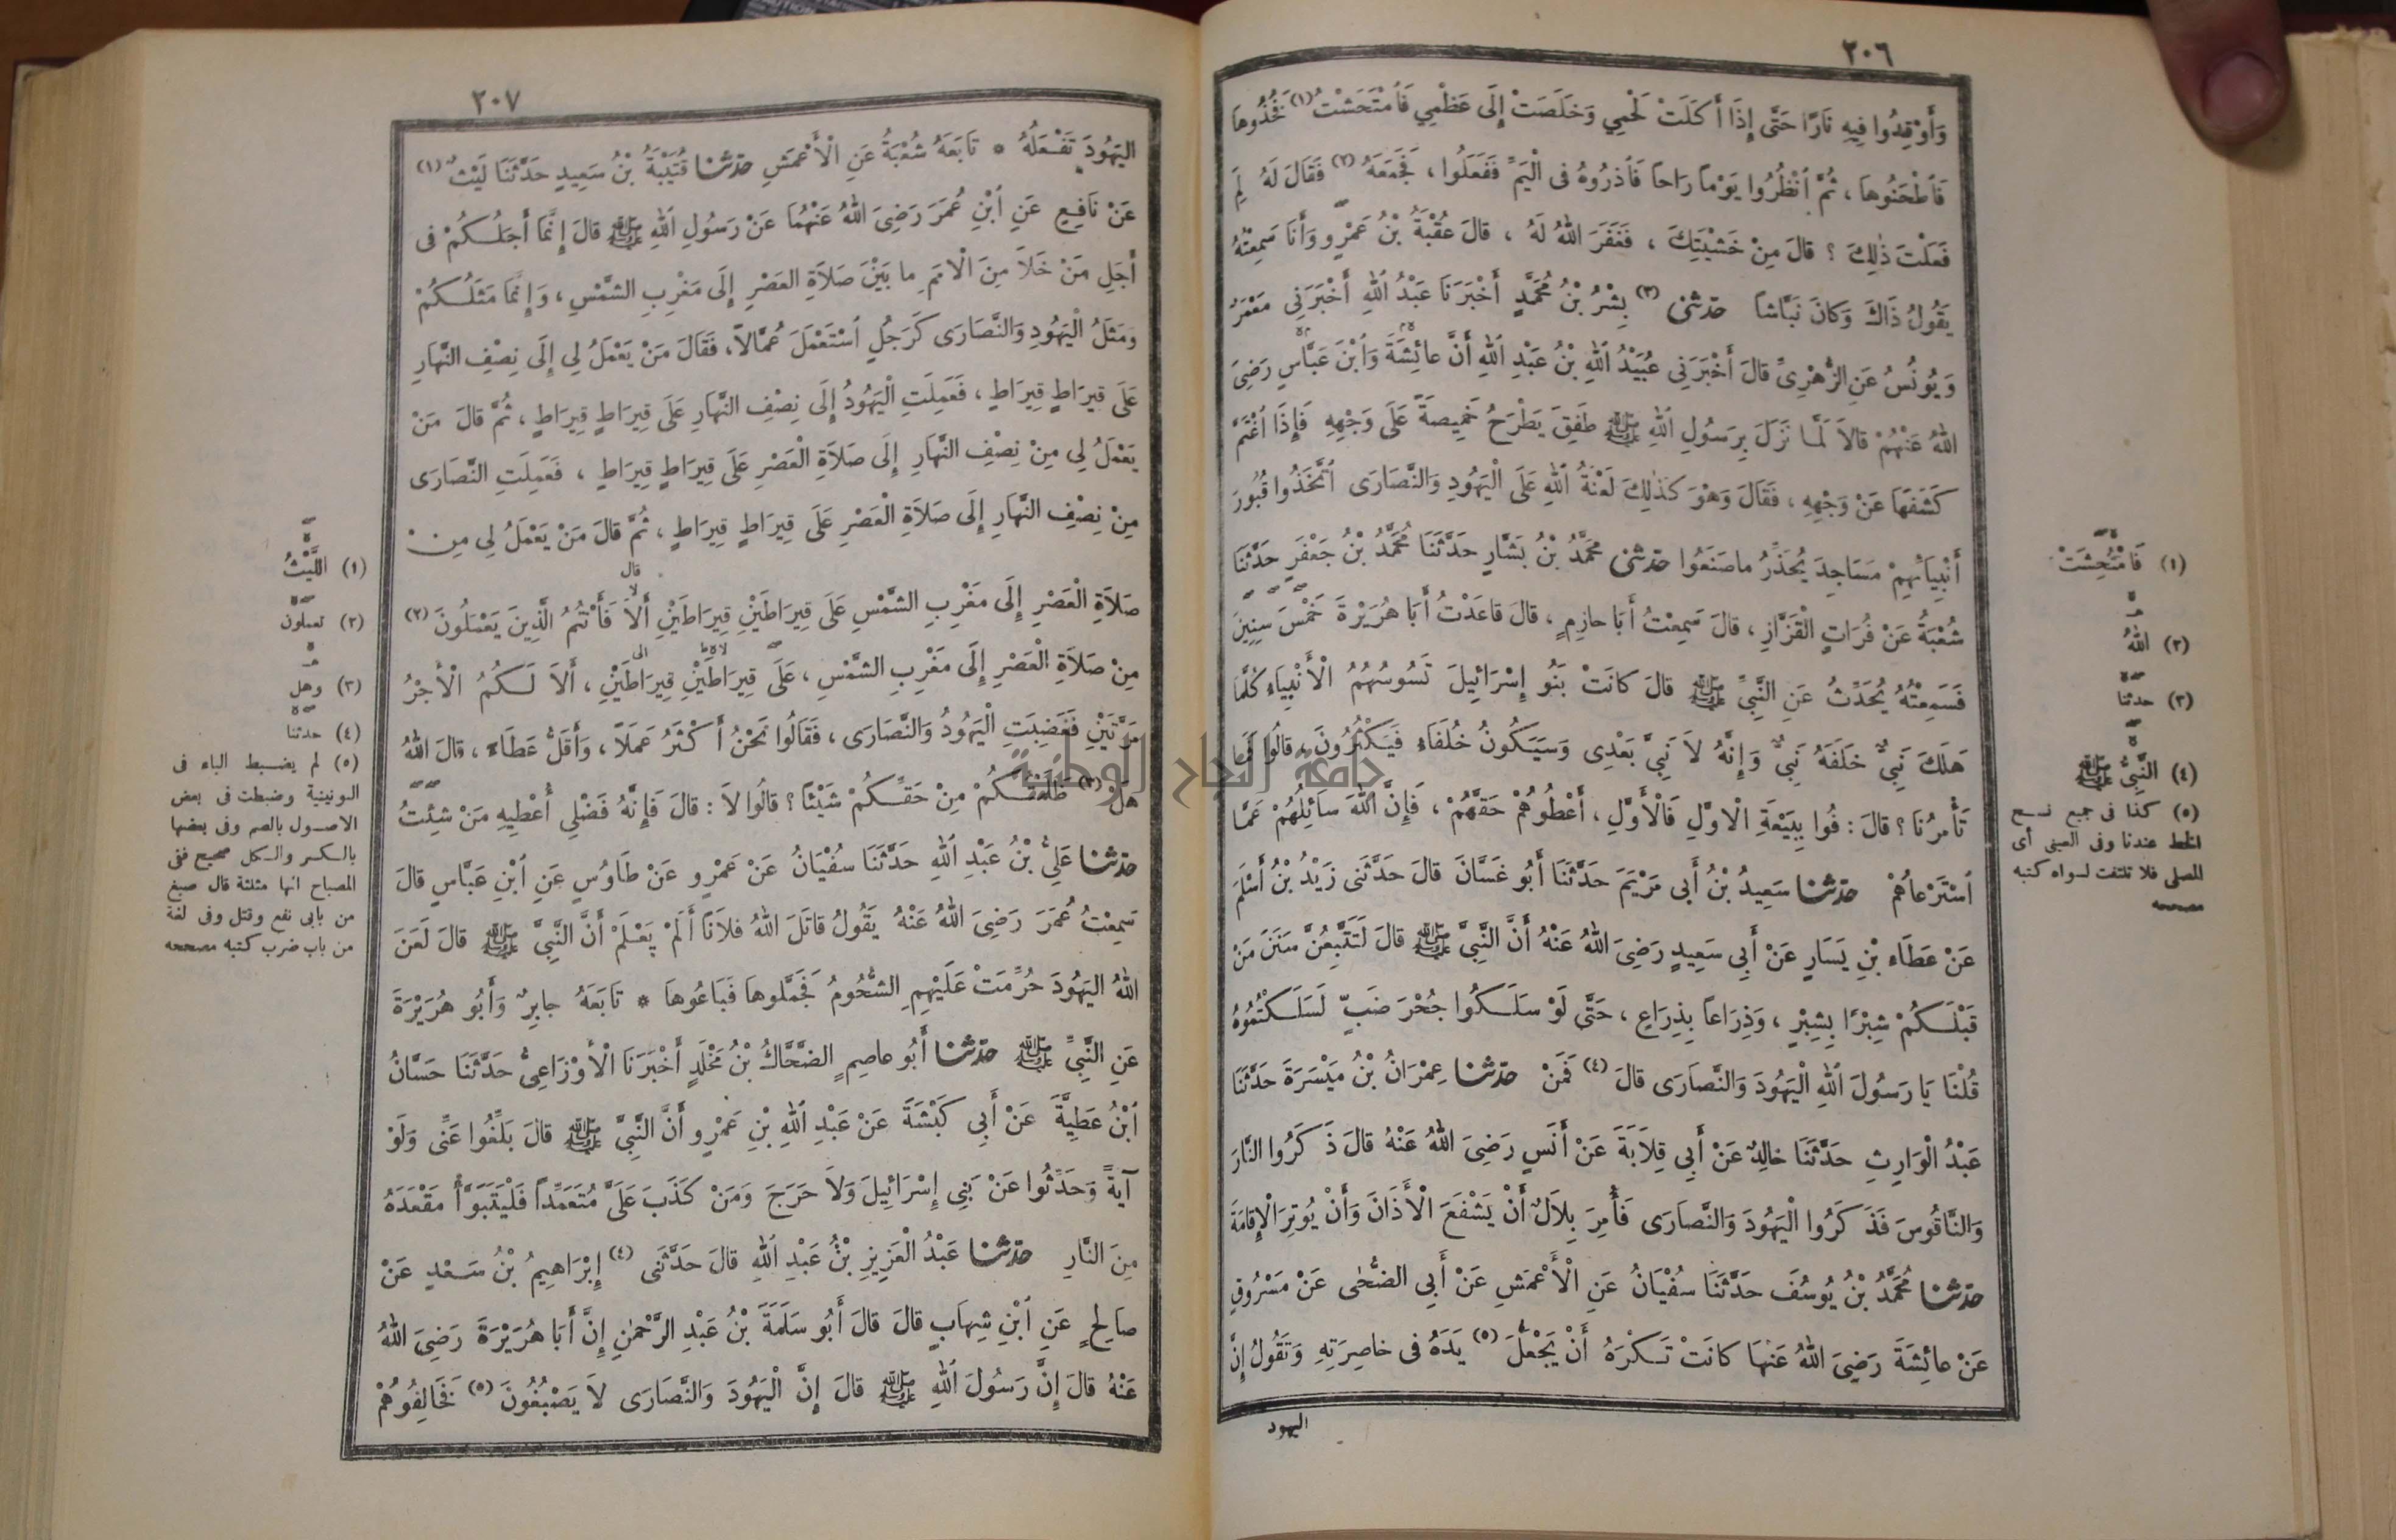 ٢٠٦
وَأَوْقِدُوا فِيهِ نَارًا حَتَّى إِذَا أَكَلَتْ لَحْمِي وَخَلَصَتْ إِلَى عَظْمِي فَامْتَحَشْتُ (١) فَخُذُوهَا
فَاطْحَنُوهَا ، ثُمَّ انْظُرُوا يَوْماً رَاحاً فَاذْرُوهُ فى الْيَمِّ فَفَعَلُوا ، فَجَمَعَهُ (٢) فَقَالَ لَهُ لِمَ
فَعَلْتَ ذٰلِكَ ؟ قالَ مِنْ خَشْيَتِكَ ، فَغَفَرَ اللهُ لَهُ ، قالَ عُقْبَةُ بْنُ عَمْرٍو وَأَنَا سَمِعْتُهُ
يَقُولُ ذَاكَ وَكانَ نَبَّاشاً حدثنى (٣) بِشْرُ بْنُ مُحَمَّدٍ أَخْبَرَنَا عَبْدُ اللهِ أَخْبَرَنِى مَعْمَرٌ
وَيُونُسُ عَنِ الزُّهْرِىِّ قالَ أَخْبَرَنِى عُبَيْدُ اللهِ بْنُ عَبْدِ اللهِ أَنَّ عائِشَةَ وَابْنَ عَبَّاسٍ رَضِىَ
اللهُ عَنْهُمْ قالاَ لَمَّا نَزَلَ بِرَسُولِ اللهِ ﷺ طَفِقَ يَطْرَحُ خَمِيصَةً عَلَى وَجْهِهِ فَإِذَا اغْتَمَّ
كَشَفَهَا عَنْ وَجْهِهِ ، فَقَالَ وَهْوَ كَذٰلِكَ لَعْنَةُ اللهِ عَلَى الْيَهُودِ وَالنَّصَارَى اتَّخَذُوا قُبُورَ
أَنْبِيَائِهِمْ مَسَاجِدَ يُحَذِّرُ ماصَنَعُوا حدثنى مُحَمَّدُ بْنُ بَشَّارٍ حَدَّثَنَا مُحَمَّدُ بْنُ جَعْفَرٍ حَدَّثَنَا
شُعْبَةُ عَنْ فُرَاتٍ الْقَزَّازِ ، قالَ سَمِعْتُ أَبَا حازِمٍ ، قالَ قاعَدْتُ أَبَا هُرَيْرَةَ خَمْسَ سِنِينَ
فَسَمِعْتُهُ يُحَدِّثُ عَنِ النَّبِىِّ ﷺ قالَ كانَتْ بَنُو إِسْرَائِيلَ تَسُوسُهُمُ الْأَنْبِيَاءُ كُلَّمَا
هَلَكَ نَبِىٌّ خَلَفَهُ نَبِىٌّ وَإِنَّهُ لاَ نَبِىَّ بَعْدِى وَسَيَكُونُ خُلَفَاءُ فَيَكْثُرُونَ ، قالُوا فَمَا
تَأْمُرُنَا ؟ قالَ : فُوا بِبَيْعَةِ الْاوَّلِ فَالْأَوَّلِ ، أَعْطُوهُمْ حَقَّهُمْ ، فَإِنَّ اللهَ سَائِلُهُمْ عَمَّا
اسْتَرْعاهُمْ حدثنا سَعِيدُ بْنُ أَبِى مَرْيَمَ حَدَّثَنَا أَبُو غَسَّانَ قالَ حَدَّثَنِى زَيْدُ بْنُ أَسْلَمَ
عَنْ عَطَاءِ بْنِ يَسَارٍ عَنْ أَبِى سَعِيدٍ رَضِىَ اللهُ عَنْهُ أَنَّ النَّبِىَّ ﷺ قالَ لَتَتَّبِعُنَّ سَنَنَ مَنْ
قَبْلَكُمْ شِبْرًا بِشِبْرٍ ، وَذِرَاعاً بِذِرَاعٍ ، حَتَّى لَوْ سَلَكُوا جُحْرَ ضَبٍّ لَسَلَكْتُمُوهُ
قُلْنَا يَا رَسُولَ اللهِ الْيَهُودَ وَالنَّصَارَى قالَ (٤) فَمَنْ حدثنا عِمْرَانُ بْنُ مَيْسَرَةَ حَدَّثَنَا
عَبْدُ الْوَارِثِ حَدَّثَنَا خالِدٌ عَنْ أَبِى قِلَابَةَ عَنْ أَنَسٍ رَضِىَ اللهُ عَنْهُ قالَ ذَكَرُوا النَّارَ
وَالنَّاقُوسَ فَذَكَرُوا الْيَهُودَ وَالنَّصَارَى فَأُمِرَ بِلاَلٌ أَنْ يَشْفَعَ الْأَذَانَ وَأَنْ يُوتِرَ الْإِقامَةَ
حدثنا مُحَمَّدُ بْنُ يُوسُفَ حَدَّثَنَا سُفْيَانُ عَنِ الْأَعْمَشِ عَنْ أَبِى الضُّحٰى عَنْ مَسْرُوقٍ
عَنْ عائِشَةَ رَضِىَ اللهُ عَنْهَا كانَتْ تَكْرَهُ أَنْ يَجْعَلَ (٥) يَدَهُ فى خاصِرَتِهِ وَتَقُولُ إِنَّ
اليهود
(١) فَامْتُحِشَتْ
(٢) اللهُ
(٣) حدثنا
(٤) النَّبِىُّ ﷺ
(٥) كذا فى جميع نسخ
الخط عندنا وفى العينى أى
المصلى فلا تلتفت لسواه كتبه
مصححه
٢٠٧
اليَهُودَ تَفْعَلُهُ * تَابَعَهُ شُعْبَةُ عَنِ الْأَعْمَشِ حدثنا قُتَيْبَةُ بْنُ سَعِيدٍ حَدَّثَنَا لَيْثٌ (١)
عَنْ نَافِعٍ عَنِ ابْنِ عُمَرَ رَضِىَ اللهُ عَنْهُمَا عَنْ رَسُولِ اللهِ ﷺ قالَ إِنَّمَا أَجَلُكُمْ فى
أَجَلِ مَنْ خَلاَ مِنَ الْامَمِ ما بَيْنَ صَلاَةِ العَصْرِ إِلَى مَغْرِبِ الشَّمْسِ ، وَإِنَّمَا مَثَلُكُمْ
وَمَثَلُ الْيَهُودِ وَالنَّصَارَى كَرَجُلٍ اسْتَعْمَلَ عُمَّالاً ، فَقَالَ مَنْ يَعْمَلُ لِى إِلَى نِصْفِ النَّهَارِ
عَلَى قِيرَاطٍ قِيرَاطٍ ، فَعَمِلَتِ الْيَهُودُ إِلَى نِصْفِ النَّهَارِ عَلَى قِيرَاطٍ قِيرَاطٍ ، ثُمَّ قالَ مَنْ
يَعْمَلُ لِى مِنْ نِصْفِ النَّهَارِ إِلَى صَلاَةِ الْعَصْرِ عَلَى قِيرَاطٍ قِيرَاطٍ ، فَعَمِلَتِ النَّصَارَى
مِنْ نِصْفِ النَّهَارِ إِلَى صَلاَةِ الْعَصْرِ عَلَى قِيرَاطٍ قِيرَاطٍ ، ثُمَّ قالَ مَنْ يَعْمَلُ لِى مِنْ
صَلاَةِ الْعَصْرِ إِلَى مَغْرِبِ الشَّمْسِ عَلَى قِيرَاطَيْنِ قِيرَاطَيْنِ أَلاَ فَأَنْتُمُ الَّذِينَ يَعْمَلُونَ (٢)
مِنْ صَلاَةِ الْعَصْرِ إِلَى مَغْرِبِ الشَّمْسِ ، عَلَى قِيرَاطَيْنِ قِيرَاطَيْنِ ، أَلاَ لَكُمُ الْأَجْرُ
مَرَّتَيْنِ فَغَضِبَتِ الْيَهُودُ وَالنَّصَارَى ، فَقَالُوا نَحْنُ أَكْثَرُ عَمَلاً ، وَأَقَلُّ عَطَاءً ، قالَ اللهُ
هَلْ (٣) ظَلَمْتُكُمْ مِنْ حَقِّكُمْ شَيْئًا ؟ قالُوا لاَ : قالَ فَإِنَّهُ فَضْلِى أُعْطِيهِ مَنْ شِئْتُ
حدثنا عَلِىُّ بْنُ عَبْدِ اللهِ حَدَّثَنَا سُفْيَانُ عَنْ عَمْرٍو عَنْ طَاوُسٍ عَنِ ابْنِ عَبَّاسٍ قالَ
سَمِعْتُ عُمَرَ رَضِىَ اللهُ عَنْهُ يَقُولُ قاتَلَ اللهُ فلاَنًا أَلَمْ يَعْلَمْ أَنَّ النَّبِىَّ ﷺ قالَ لَعَنَ
اللهُ اليَهُودَ حُرِّمَتْ عَلَيْهِمِ الشُّحُومُ فَجَمَّلوهَا فَبَاعُوهَا * تَابَعَهُ جابِرٌ وَأَبُو هُرَيْرَةَ
عَنِ النَّبِىِّ ﷺ حدثنا أَبُو عاصِمٍ الضَّحَّاكُ بْنُ مَخْلَدٍ أَخْبَرَنَا الْأَوْزَاعِىُّ حَدَّثَنَا حَسَّانُ
ابْنُ عَطِيَّةَ عَنْ أَبِى كَبْشَةَ عَنْ عَبْدِ اللهِ بْنِ عَمْرٍو أَنَّ النَّبِىَّ ﷺ قالَ بَلِّغُوا عَنِّى وَلَوْ
آيَةً وَحَدِّثُوا عَنْ بَنِى إِسْرَائِيلَ وَلاَ حَرَجَ وَمَنْ كَذَبَ عَلَىَّ مُتَعَمِّداً فَلْيَتَبَوَّأْ مَقْعَدَهُ
مِنَ النَّارِ حدثنا عَبْدُ الْعَزِيزِ بْنُ عَبْدِ اللهِ قالَ حَدَّثَنِى (٤) إِبْرَاهِيمُ بْنُ سَعْدٍ عَنْ
صَالِحٍ عَنِ ابْنِ شِهَابٍ قالَ قالَ أَبُو سَلَمَةَ بْنُ عَبْدِ الرَّحْمٰنِ إِنَّ أَبَا هُرَيْرَةَ رَضِىَ اللهُ
عَنْهُ قالَ إِنَّ رَسُولَ اللهِ ﷺ قالَ إِنَّ الْيَهُودَ وَالنَّصَارَى لاَ يَصْبُغُونَ (٥) فَخَالِفُوهُمْ
(١) اللَّيْثُ
(٢) تعملون
(٣) وهل
(٤) حدثنا
(٥) لم يضبط الباء فى
اليونينية وضبطت فى بعض
الاصول بالضم وفى بعضها
بالكسر والكل صحيح ففى
المصباح انها مثلثة قال صبغ
من بابى نفع وقتل وفى لغة
من باب ضرب كتبه مصححه
جامعة النجاح الوطنية